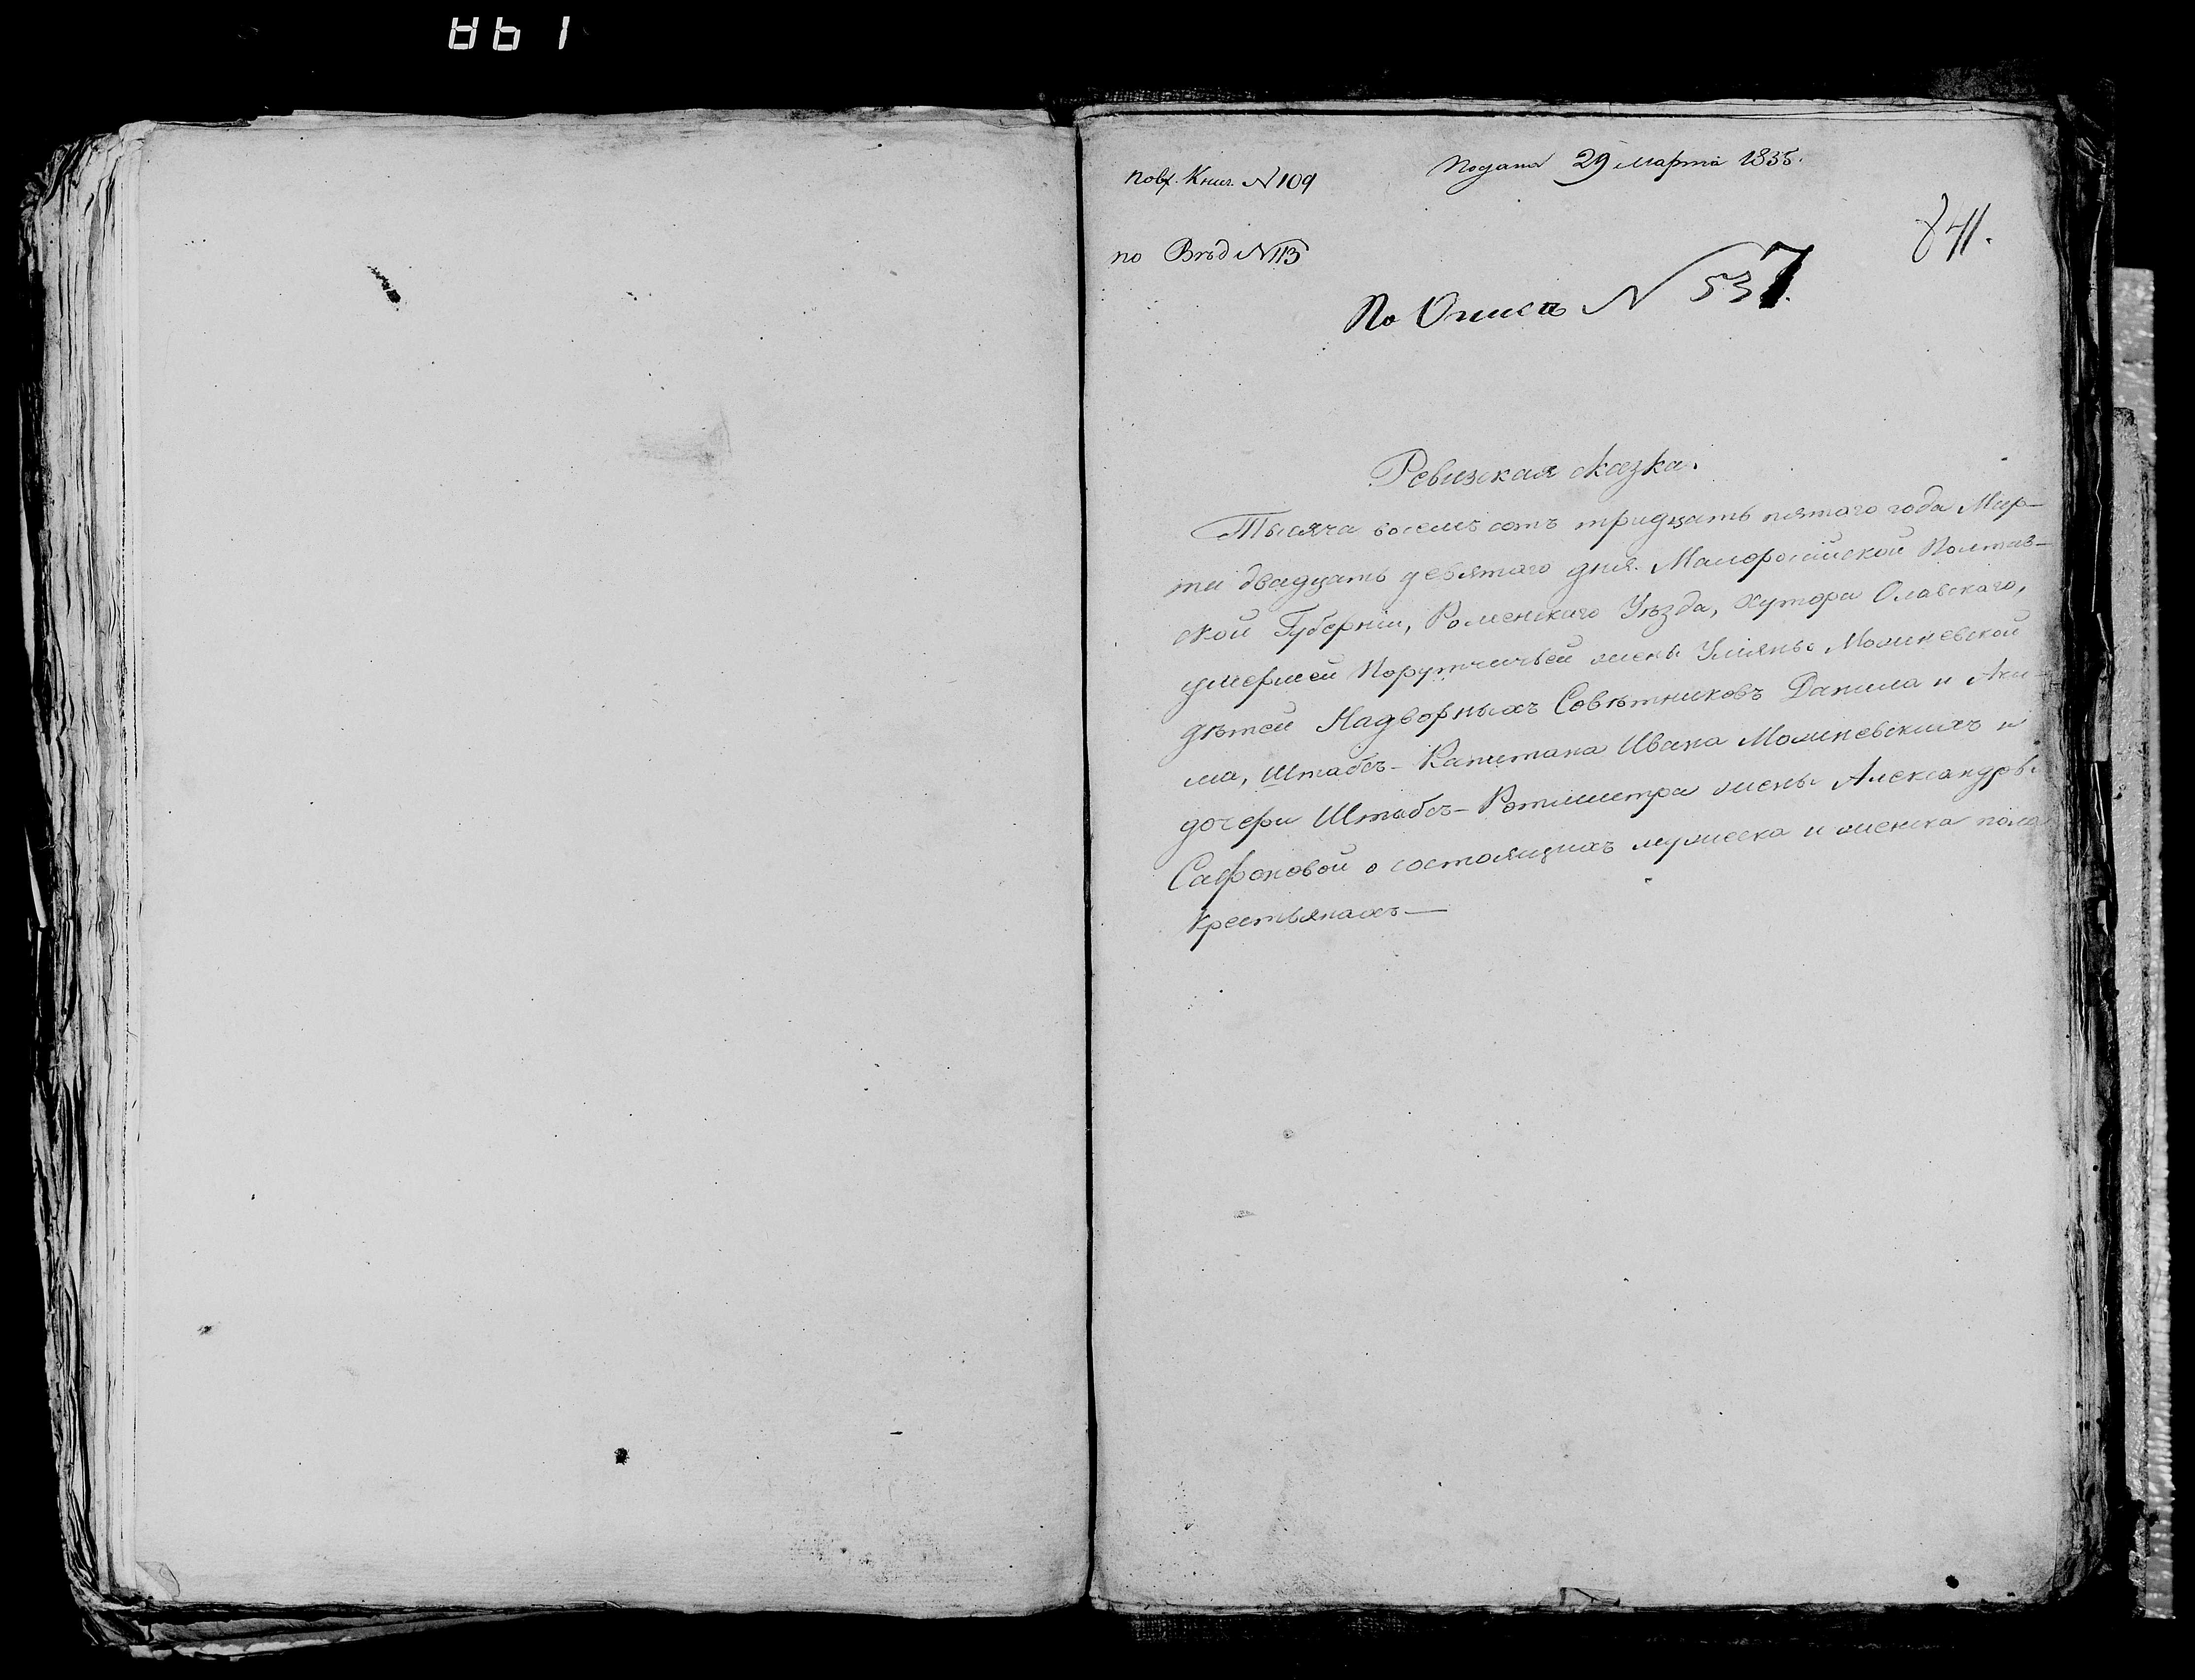 по вх. Книг. N 109
Подана 29 марта 1835.
841.
по Вѣд N 113
По Описи N 537.
Ревизская сказка.
Тысяча восемъ сотъ тридцать пятого года Мар-
та двадцать девятого дня. Малоросiйской Полтав-
ской Губернiи, Роменскаго Уѣзда, Хутора Олавскаго,
умершей Порутчичьей жены Ульяны
дѣтей Надворныхъ Совѣтниковъ Данила и Аки-
ма, Штабсъ-Капитана Ивана и
дочери Штабсъ-Ротмистра жены Александры
Сафоновой о состоящихъ мужеска и женска пола
Крестьянахъ—